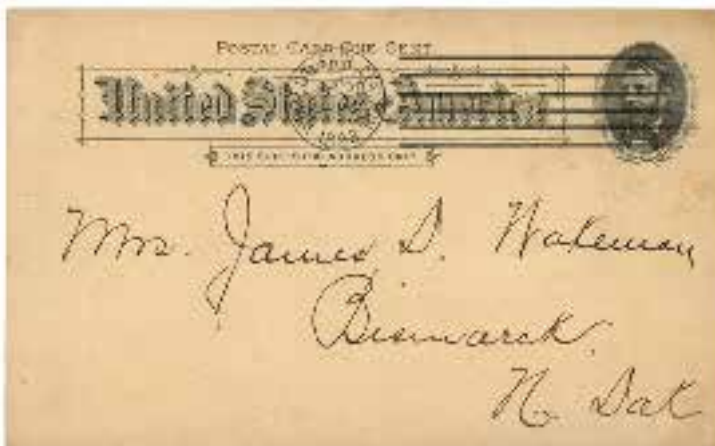 POSTAL CARD ONE CENT.
United States of America
THIS SIDE IS FOR ADDRESS ONLY.
Mrs. James D. Wakeman
Bismarck.
N. Dak